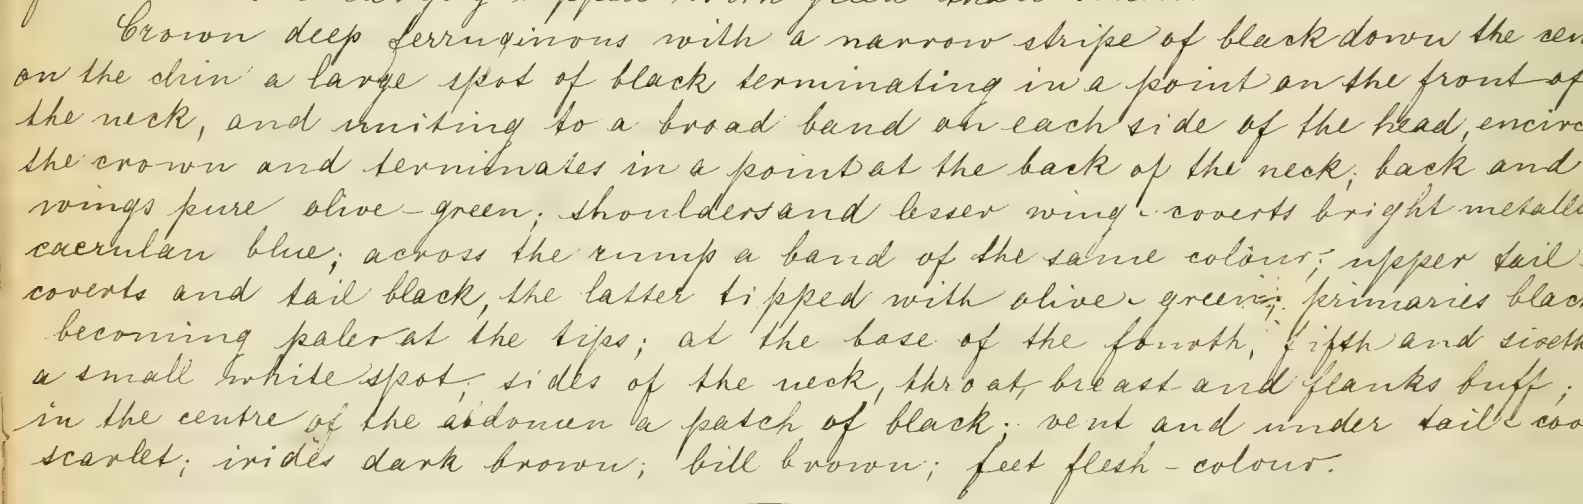 Crown deep ferruginous with a narrow stripe of black down the cen
on the chin a large spot of black terminating in a point on the front of
the neck, and uniting to a broad band on each side of the head, encirc
the crown and terminates in a point at the back of the neck; back and
wings pure olive-green; shoulders and lesser wing-coverts bright metalli
caerulan blue; across the rump a band of the same colour; upper tail-
coverts and tail black, the latter tipped with olive-green; primaries black
becoming paler at the tips; at the base of the fourth, fifth and sixth
a small white spot; sides of the neck, throat, breast and flanks buff;
in the centre of the abdomen a patch of black; vent and under tail-cov
scarlet; irides dark brown; bill brown; feet flesh-colour.